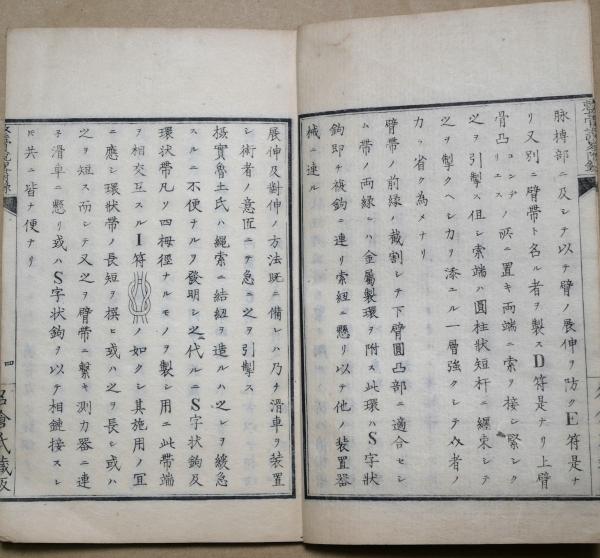 脉搏部ニ及シテ以テ臂ノ展伸ヲ防クE符是ナ
リ又別ニ臂帶ト名ル者ヲ製スD符是ナリ上臂
骨凸コンデノ所ニ置キ両端ニ索ヲ接シ緊シク
之ヲ引掣ス但シ索端ハ圓柱状短杆ニ纏束シテ
之ヲ掣クヘシ力ヲ添ユル一層強クシテ
カヲ省ク為メナリ
臂帶ノ前縁ノ截割シテ下臂圓凸部ニ適合セシ
ム帶ノ両縁ニハ金属製環ヲ附ス此環ハS字状
鉤即チ機鉤ニ連リ索紐ニ懸リ以テ他ノ装置器
械ニ連ル
展伸及對伸ノ方法既ニ備レハ乃チ滑車ヲ装置
シ術者ノ意匠ニテ急ニ之ヲ引掣ス
極實魯土氏ハ繩索ニ結紐ヲ造ルハ之レヲ緩急
スルニ不便ナルヲ發明シ之代ルニS字状鉤及
環状帶凡ソ四拇徑ナルモノヲ製シ用ニ此帶端
ヲ相交互スルI符ノ如クシ其施用ノ冝
ニ應シ環状帶ノ長短ヲ撰ヒ或ハ之ヲ長シ或ハ
之ヲ短ス而シテ又之ヲ臂帶ニ繫キ測力器ニ連
ネ滑車ニ懸リ或ハS字状鉤ヲ以テ相鏈接スレ
ハ共ニ皆ナ便ナリ
四
氏蔵版